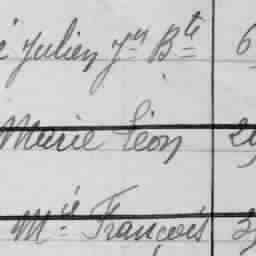 Julien Jn Bte 6
Marie Léon 2
Mie François 3